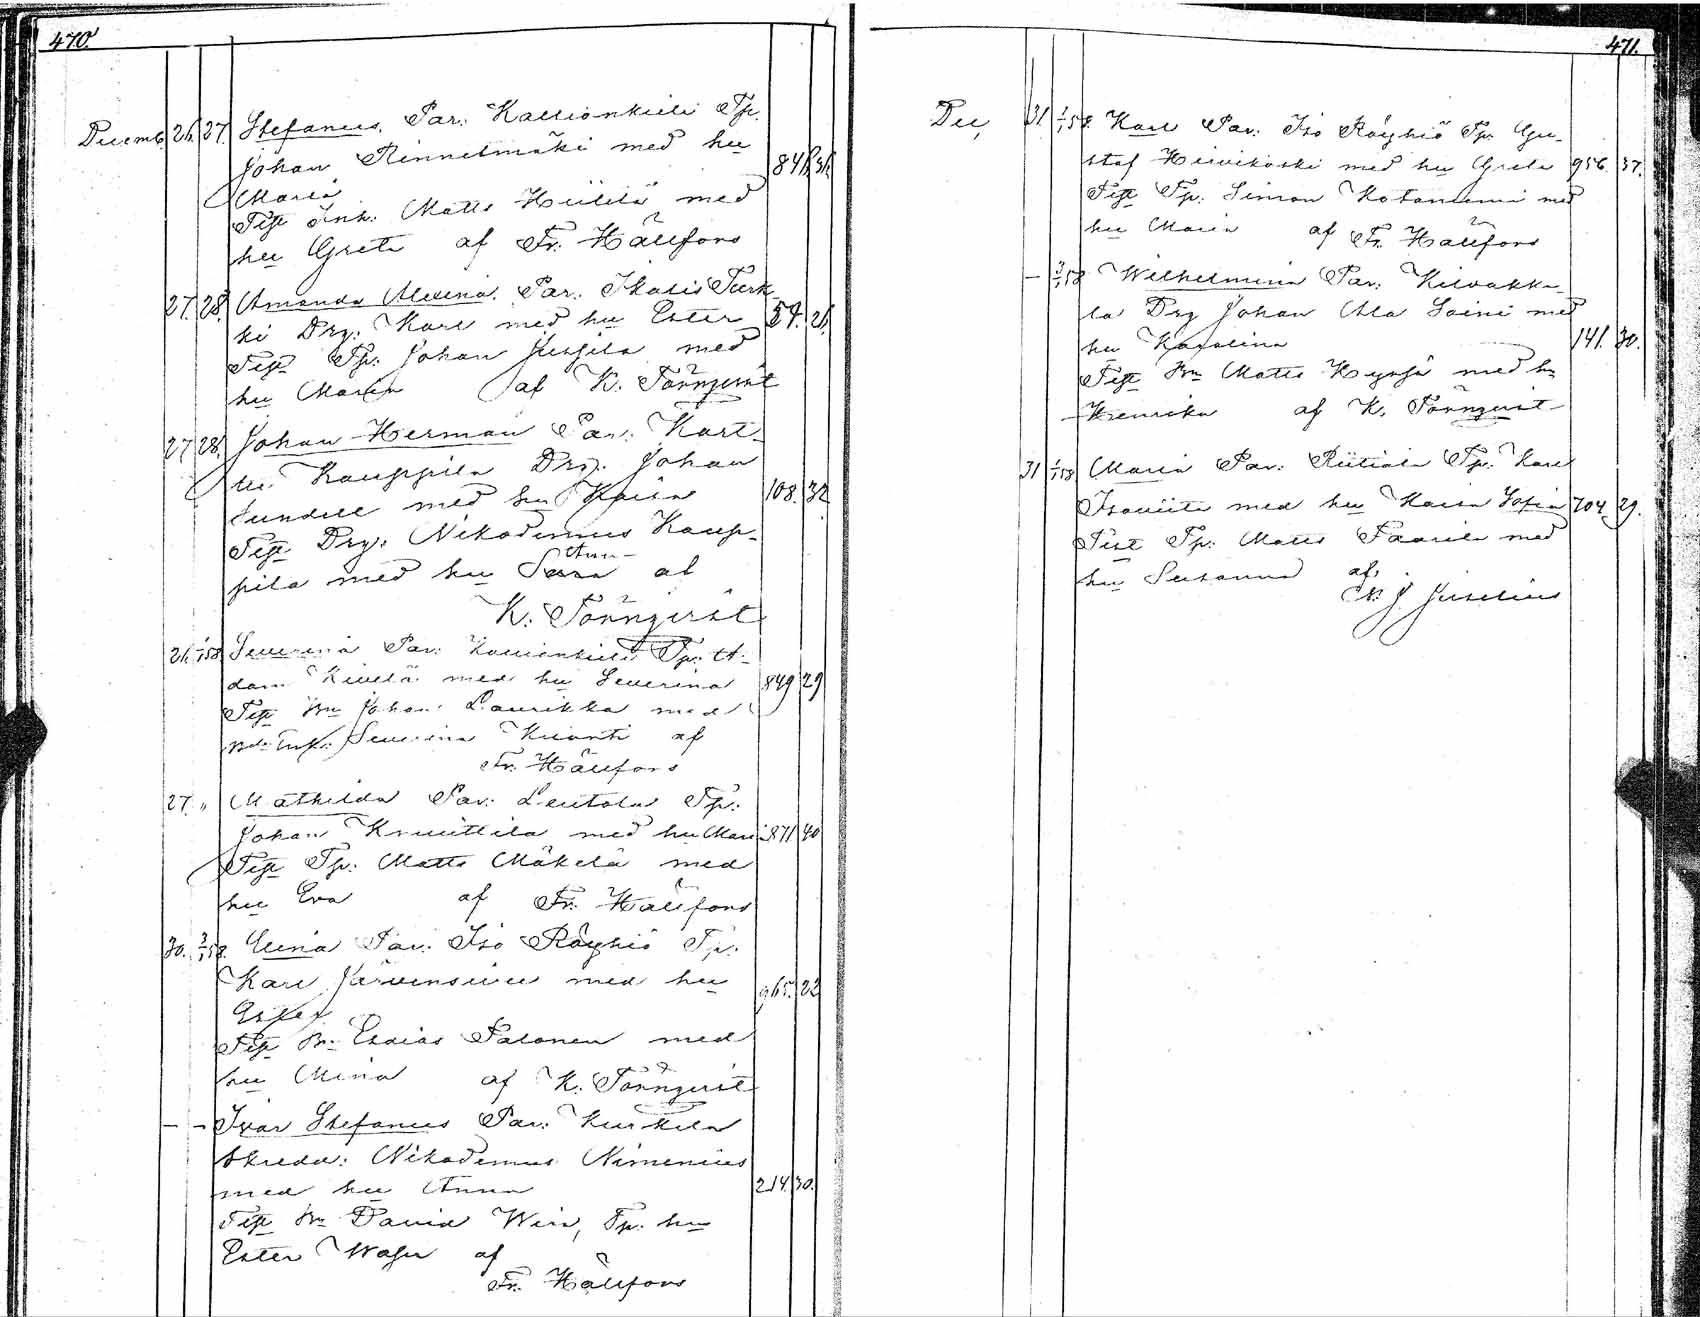 470.
Decemb. 26. 27. Stefanus. Par: Kallionkieli Tp.
Johan Rinnelmäki med hu
Maria 846. 36.
Test Inh: Matts Heikilä med
hu Greta af Fr. Hällfors
27. 28. Amanda Alexina. Par: Ikalis Turk-
ki Drg: Karl med hu Ester 54. 26.
Test Tp: Johan Jussila med
hu Maria af K. Törnqvist
27. 28. Johan Herman Par: Kart-
tu Kauppila Drg. Johan
Sundell med hu Kaisa 108. 32
Test Drg: Nikodemus Kaup-
pila med hu Anna af
K. Törnqvist
26. 1/1 58 Severina Par: Kallionkieli Tp: A-
dam Kivelä med hu Severina 849 29
Test Bn Johan Laurikka med
Severina Kivonti af
Fr. Hällfors
27. " Mathilda Par: Leutola Tp:
Johan Knuittila med hu Maria 871 40
Test Tp: Matts Mäkelä med
hu Eva af Fr. Hällfors
30. 3/1 58. Elina Par: Iso Röyhiö Tp:
Karl Järvensivu med hu
Ester 965. 22
Test Bn Esaias Salonen med
hu Mina af K. Törnqvist
- - Ivar Stefanus Par: Kurkela
Skredd: Nikodemus Nimenius
med hu Anna 214. 30.
Test Bn David Wiri, Tp: hu
Ester af
Fr. Hällfors
471.
Dec, 31. 1/1 58. Karl Par: Iso Röyhiö Tp: Gu-
staf Heivikoski med hu Greta 956. 37.
Test Tp: Simon Kotaniemi med
hu Maria af Fr. Hällfors
- 3/1 58 Wilhelmina Par: Kilvakka-
la Drg Johan Ala Soini med
hu Karolina 141. 30.
Test Bn Matts Kyrsä med hu
Henrika af K. Törnqvist
31 1/1 58 Maria Par: Riitiala Tp: Karl
Isoviita med hu Kaisa Sofia 704. 29.
Test Tp: Matts Faarila med
hu Susanna af
J Juselius